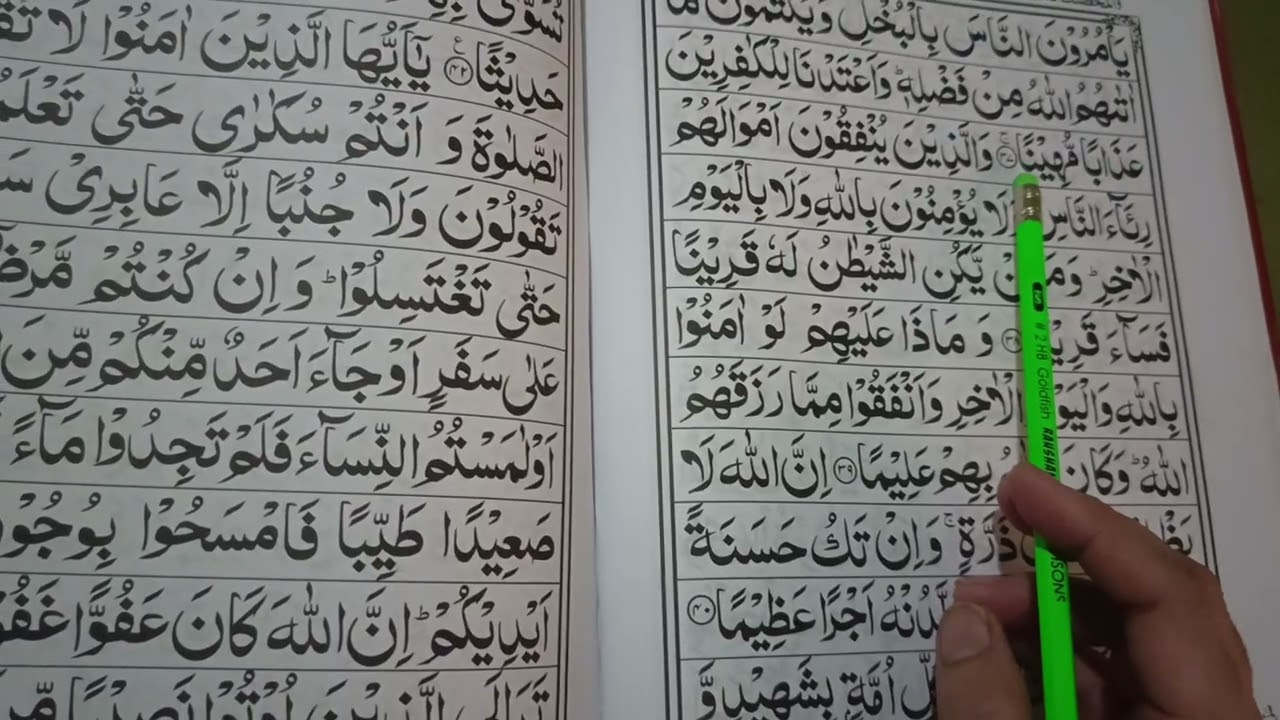 يَاْمُرُوْنَ النَّاسَ بِالْبُخْلِ وَيَكْتُمُوْنَ مَاۤ
اٰتٰىهُمُ اللّٰهُ مِنْ فَضْلِهٖ ؕ وَاَعْتَدْنَا لِلْكٰفِرِيْنَ
عَذَابًا مُّهِيْنًا ﴿۳۷﴾ وَالَّذِيْنَ يُنْفِقُوْنَ اَمْوَالَهُمْ
رِئَآءَ النَّاسِ لَا يُؤْمِنُوْنَ بِاللّٰهِ وَلَا بِالْيَوْمِ
الْاٰخِرِ ؕ يَّكُنِ الشَّيْطٰنُ لَهٗ قَرِيْنًا
فَسَآءَ ﴿۳۸﴾ وَ مَاذَا عَلَيْهِمْ لَوْ اٰمَنُوْا
بِاللّٰهِ الْاٰخِرِ وَاَنْفَقُوْا مِمَّا رَزَقَهُمُ
اللّٰهُ ؕ وَكَانَ بِهِمْ عَلِيْمًا ﴿۳۹﴾ اِنَّ اللّٰهَ لَا
ذَرَّةٍ ۚ وَاِنْ تَكُ حَسَنَةً
اَجْرًا عَظِيْمًا ﴿۴۰﴾
اُمَّةٍۭ بِشَهِيْدٍ وَّ
حَدِيْثًا ﴿۴۲﴾ يٰۤاَيُّهَا الَّذِيْنَ اٰمَنُوْا لَا
الصَّلٰوةَ وَ اَنْتُمْ سُكٰرٰى حَتّٰى
تَقُوْلُوْنَ وَلَا جُنُبًا اِلَّا عَابِرِيْ
حَتّٰى تَغْتَسِلُوْا ؕ وَ اِنْ كُنْتُمْ
عَلٰى سَفَرٍ اَوْ جَآءَ اَحَدٌ مِّنْكُمْ مِّنَ
اَوْ لٰمَسْتُمُ النِّسَآءَ فَلَمْ تَجِدُوْا مَآءً
صَعِيْدًا طَيِّبًا فَامْسَحُوْا
اَيْدِيْكُمْ ؕ اِنَّ اللّٰهَ كَانَ عَفُوًّا
# 2 HB Goldfish